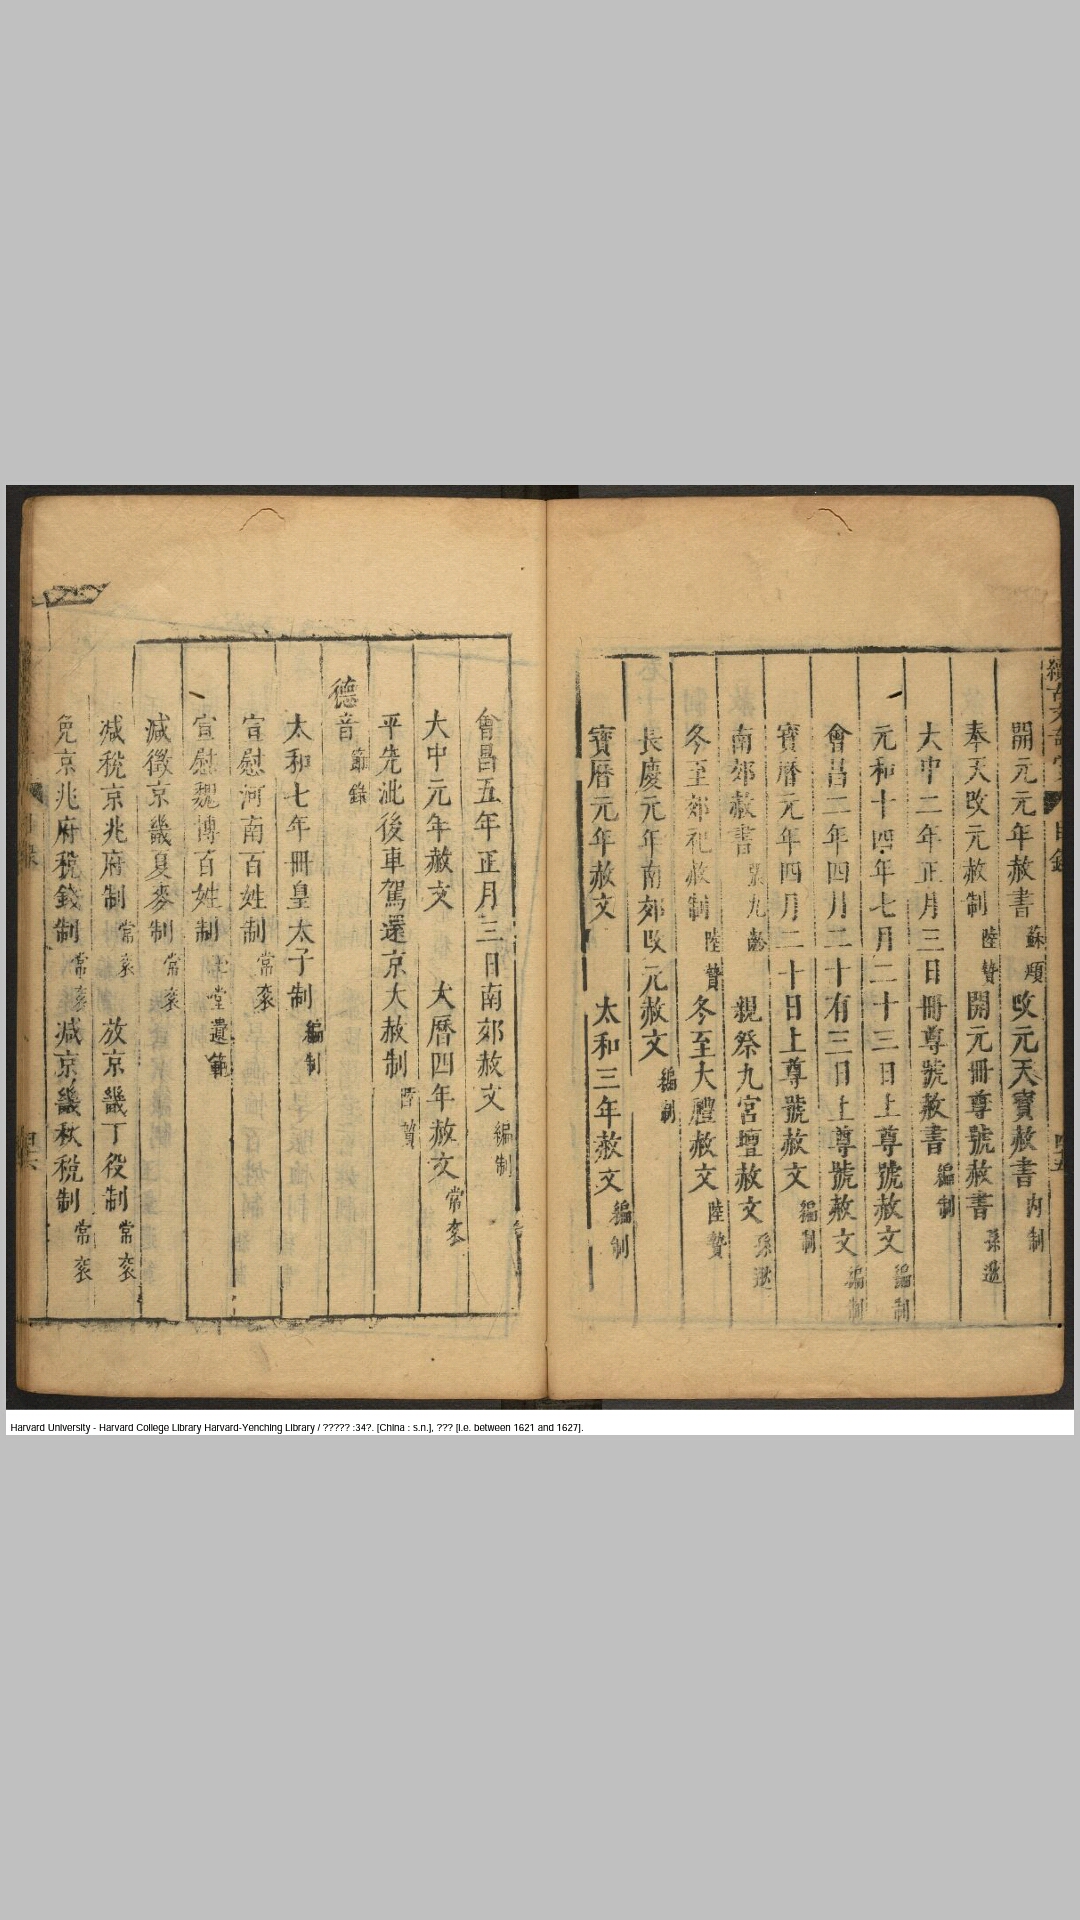 續古文奇賞 目錄
開元元年赦書 蘇頲 改元天寶赦書 內制
奉天改元赦制 陸贄 開元冊尊號赦書 孫逖
大中二年正月三日冊尊號赦書 編制
元和十四年七月二十三日上尊號赦文 編制
會昌二年四月二十有三日上尊號赦文 編制
寶曆元年四月二十日上尊號赦文 編制
南郊赦書 張九齡 親祭九宮壇赦文 孫逖
冬至郊祀赦制 陸贄 冬至大禮赦文 陸贄
長慶元年南郊改元赦文 編制
寶曆元年赦文 太和三年赦文 編制
會昌五年正月三日南郊赦文 編制
大中元年赦文 大曆四年赦文 常袞
平先泚後車駕還京大赦制 陸贄
德音 節錄
太和七年冊皇太子制 編制
宣慰河南百姓制 常袞
宣慰魏博百姓制 堂遺範
減徵京畿夏麥制 常袞
減稅京兆府制 常袞 放京畿丁役制 常袞
免京兆府稅錢制 常袞 減京畿秋稅制 常袞
Harvard University - Harvard College Library Harvard-Yenching Library / ????? :34?. [China : s.n.], ??? [i.e. between 1621 and 1627].